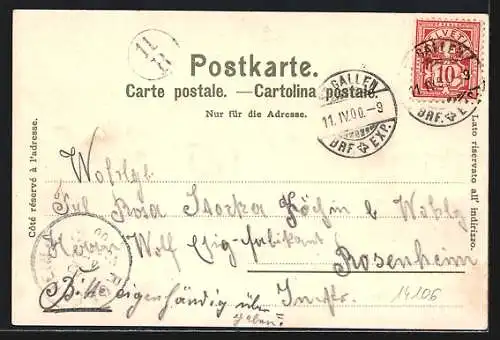 11/23
Postkarte.
Carte postale. — Cartolina postale.
Nur für die Adresse.
Côté réservé à l'adresse.
Lato riservato all' indirizzo.
HELVETIA
10
ST. GALLEN
11.IV.00.-9
BRF. EXP.
GALLEN
11.IV.
EXP.
Wohlgb.
Frl Rosa Storka Köchin b Wohlgb
Herrn Wolf Essig-fabrikant
Rosenheim
Bitte eigenhändig über
geben!!
14106